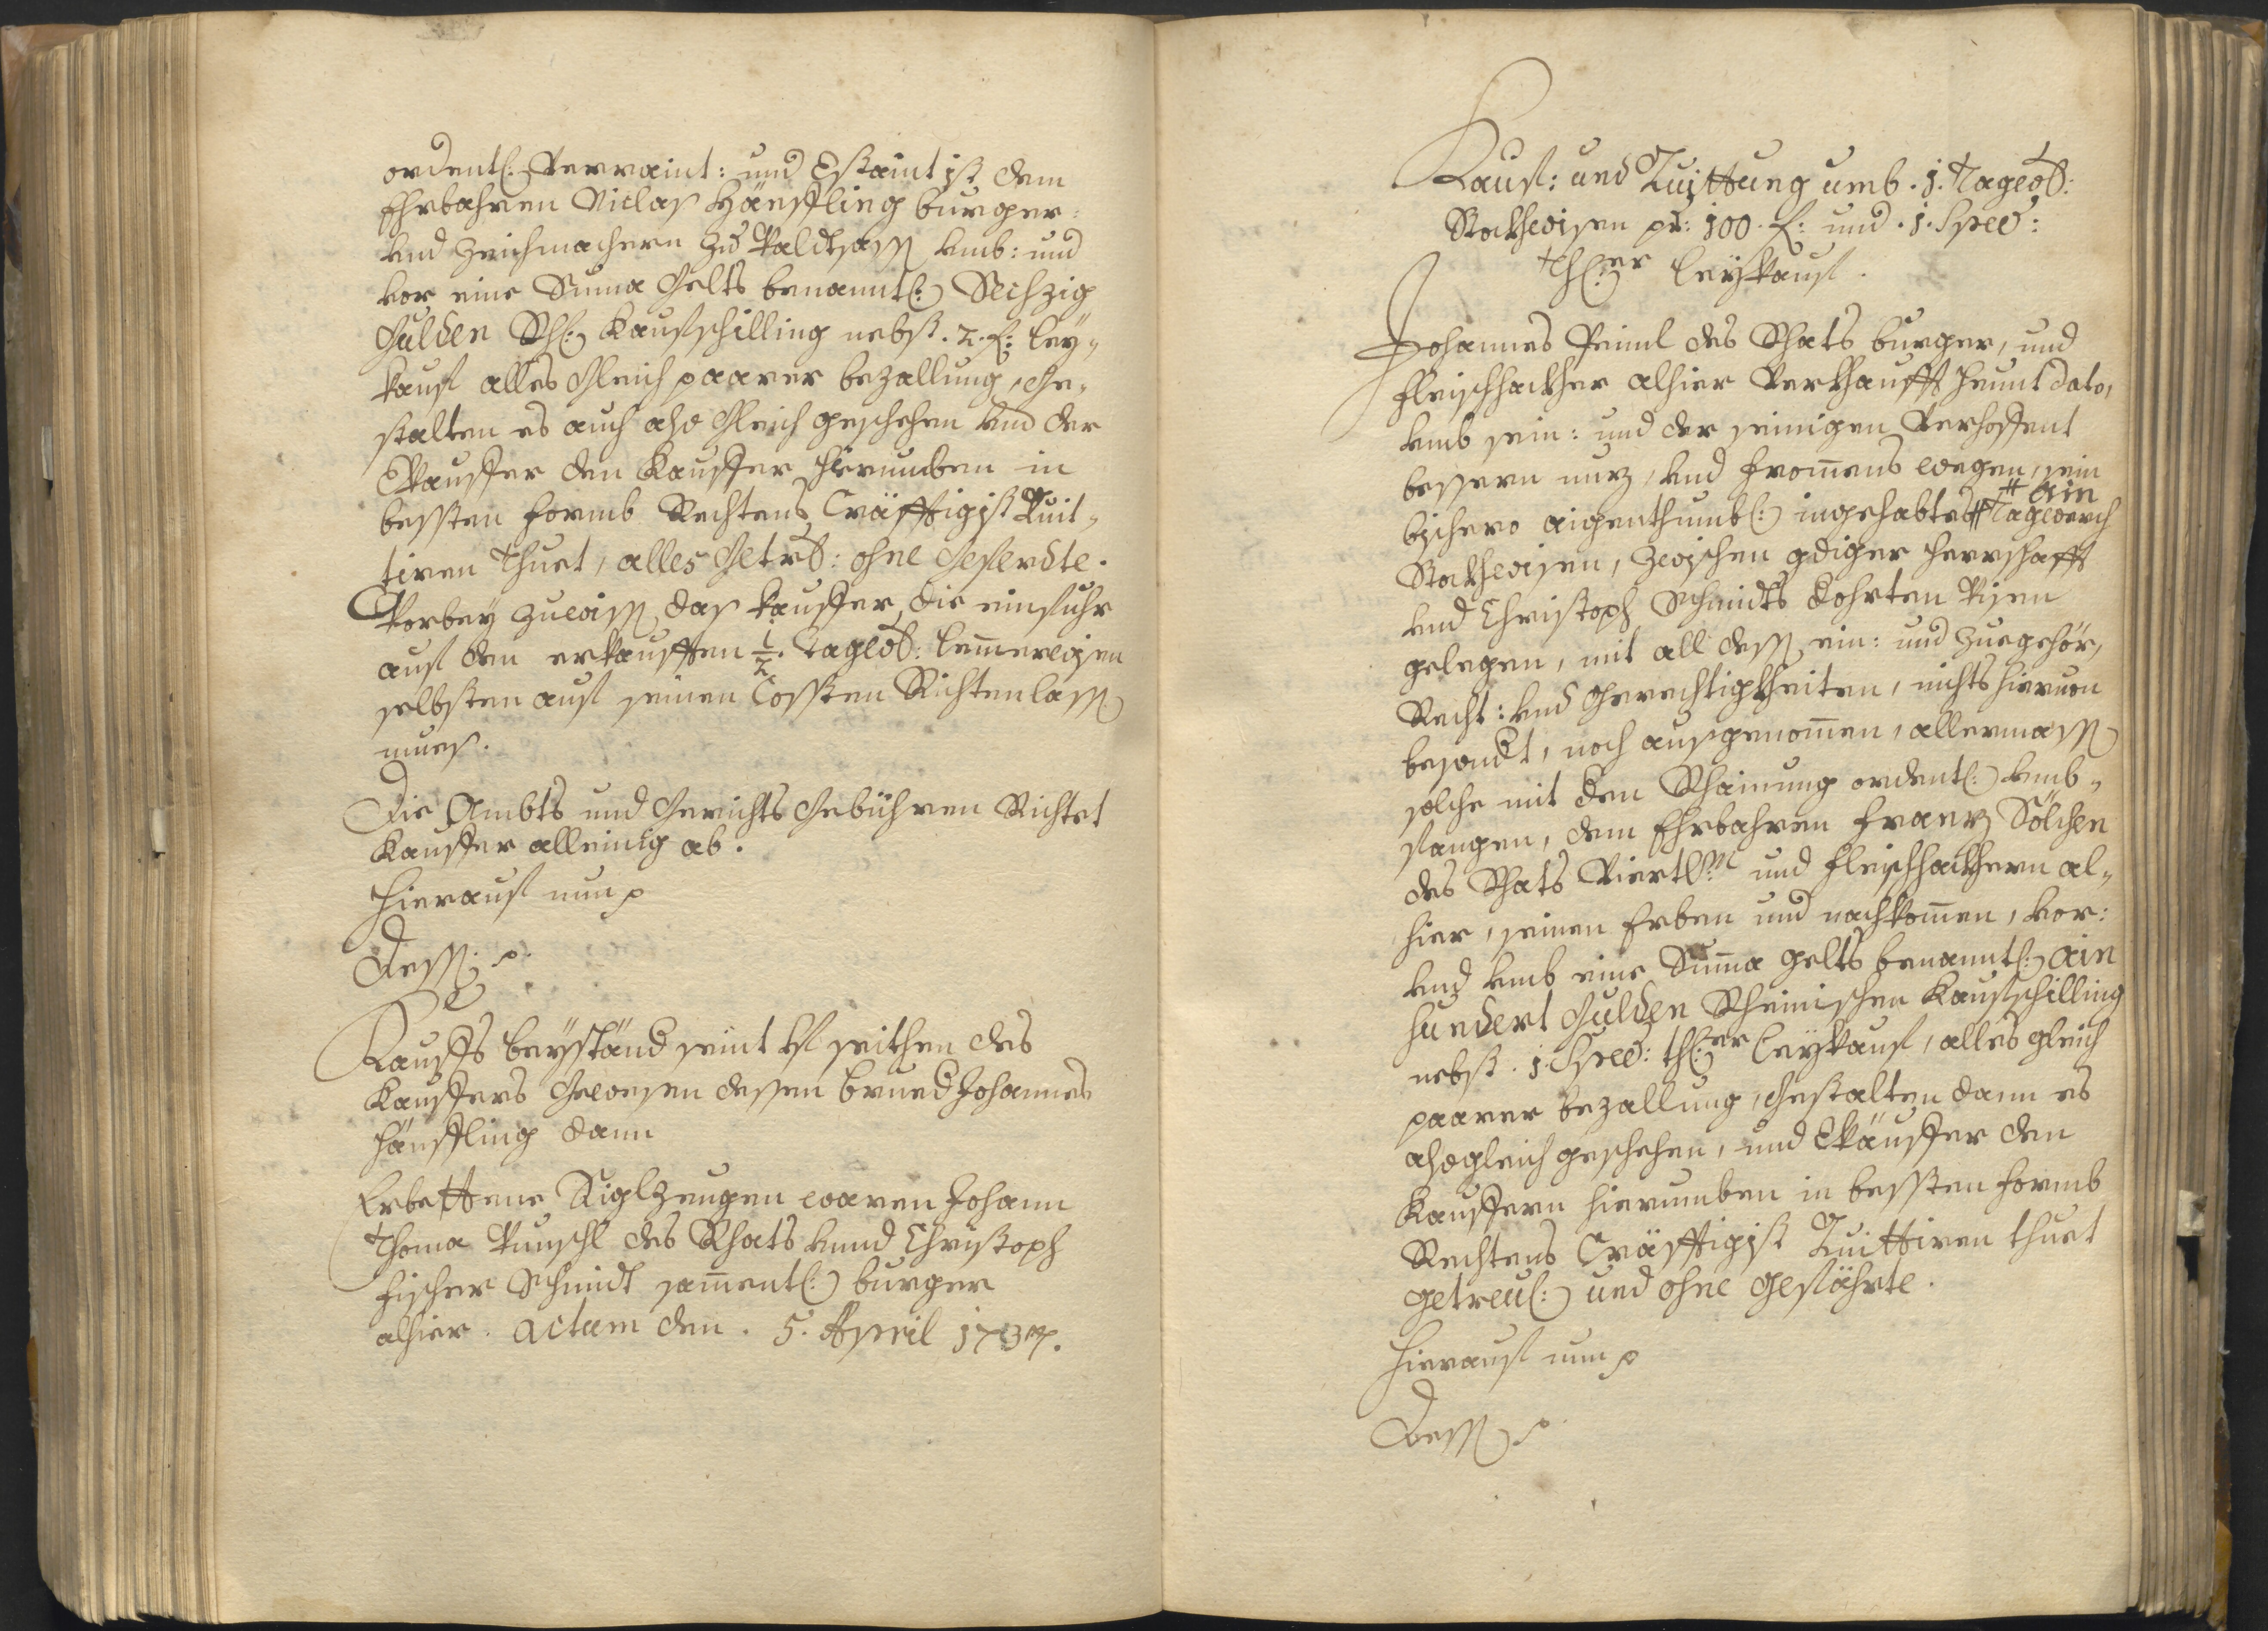 ordentl: verraint: und Estaint ist dem
Ehrbahren Niclas Hänffling burger:
und Zeichmachern zu Waldtsass umb: und
vor eine Suma Gelts benanntl: Sechzig
Gulden Rh: Kaufschilling nebst. 2. f: ley¬
kauf alles Gleich paarer bezallung, Ge¬
stalten es auch also Gleich geschehen und der
Vkauffer den Kauffer hierumben in
bessten formb Rechtens Cräfftigist Quit¬
tiren thuet, alles Getrl: ohne Geferdte.
Worbey zuwiss das kauffer die einfuhr
auf den erkaufften ½. Tagwb: 
selbsten auf seinen Cossten Richten lass
mues.
Die Ambts und Gerichts Gebühren Richtet
Kauffer alleinig ab.
Hierauf nun p
Dess: p.
Kauffs beyständ seint uf seithen des
Kauffers Gewesen dessen brued Johannes
Hänffling dann
Erbettene Siglzeugen waren Johann
Thoma Punschl des Rhats unnd Christoph
Fischer Schmidt sammentl: burger
alhier. Actum den. 5. April 1737.
Kauf: und Quittung umb. 1. Tagwb:
Stockhwisen pr: 100. f: und. 1. Spec:
Thl:er leykauf.
Johannes Peiml des Rhats burger, und
fleischhackher alhier verkhaufft heunt dato,
umb sein: und der seinigen verhoffent
bessern nuz, und frommens wegen, sein
bishero aigenthumbl: ingehabtes # Tagwerch
# Ain
Stockhwisen, zwischen gdiger herrschafft
und Christoph Schmidts dohrten Wisen
gelegen, mit all dess ein: und zuegehör,
Recht: und Gerechtigkheiten, nichts hieruon
besondt, noch ausgenommen, allermass
solche mit den Rhainung ordentl: umb¬
fangen, dem Ehrbahren Franz Sölchen
des Rhats Viertlm und fleischhackhern al¬
hier, seinen Erben und nachkommen, vor:
und umb eine Summa gelts benanntl: Ain
hundert Gulden Rheinischen Kaufschilling
nebst. 1. Spec: thl:er leykauf, alles gleich
paarer bezallung, Gestalten dann es
also gleich geschehen, und Vkäuffer den
Kauffern hierumben in bessten formb
Rechtens Cräfftigist Quittiren thuet
getreul: und ohne gefährte.
Hierauf nun p
Dess p